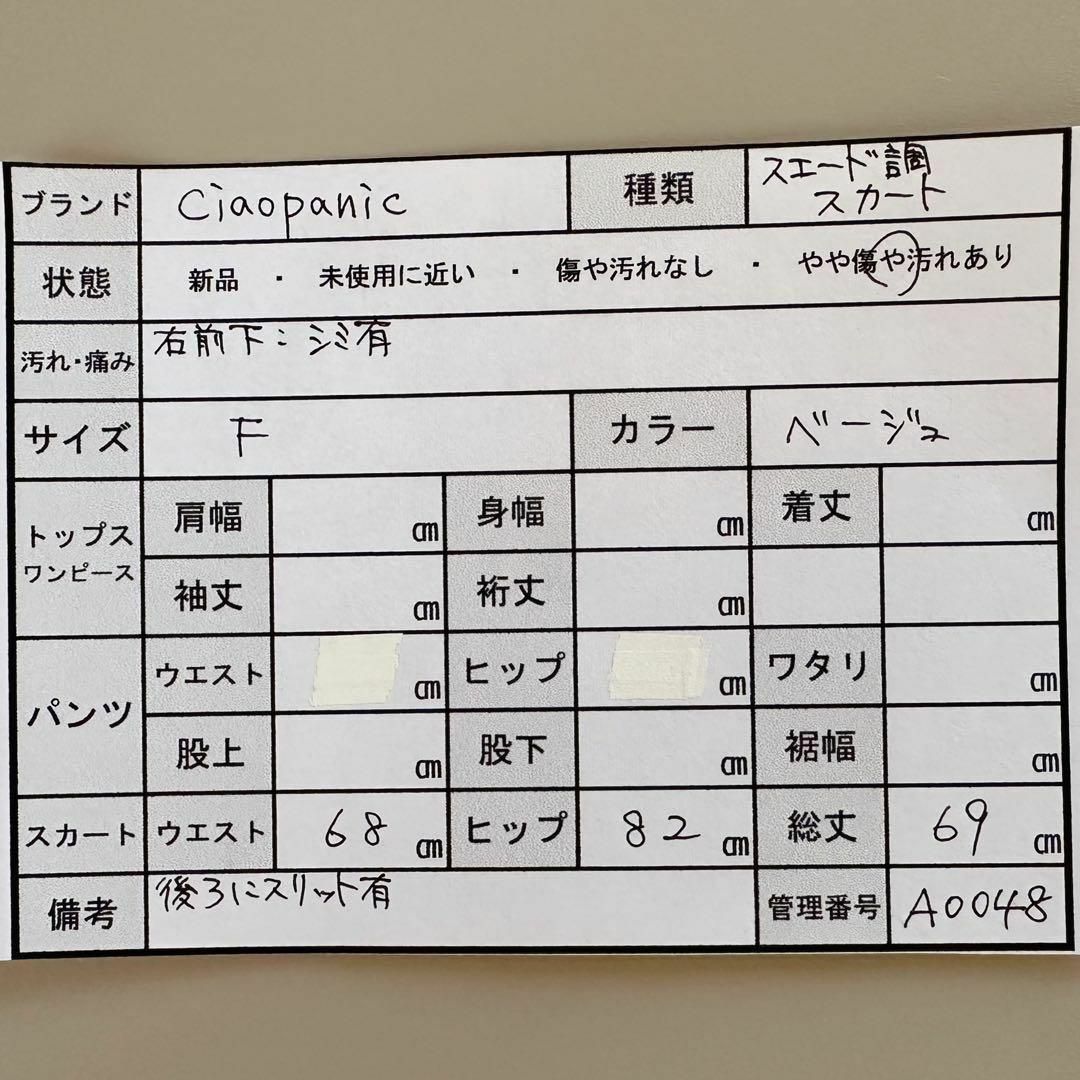 ブランド Ciaopanic 種類 スエード調
スカート
状態 新品 ・ 未使用に近い ・ 傷や汚れなし ・ やや傷や汚れあり
汚れ・痛み 右前下:シミ有
サイズ F カラー ベージュ
トップス
ワンピース
肩幅 ㎝ 身幅 ㎝ 着丈 ㎝
袖丈 ㎝ 裄丈 ㎝
パンツ
ウエスト ㎝ ヒップ ㎝ ワタリ ㎝
股上 ㎝ 股下 ㎝ 裾幅 ㎝
スカート ウエスト 68 ㎝ ヒップ 82 ㎝ 総丈 69 ㎝
備考 後ろにスリット有 管理番号 A0048